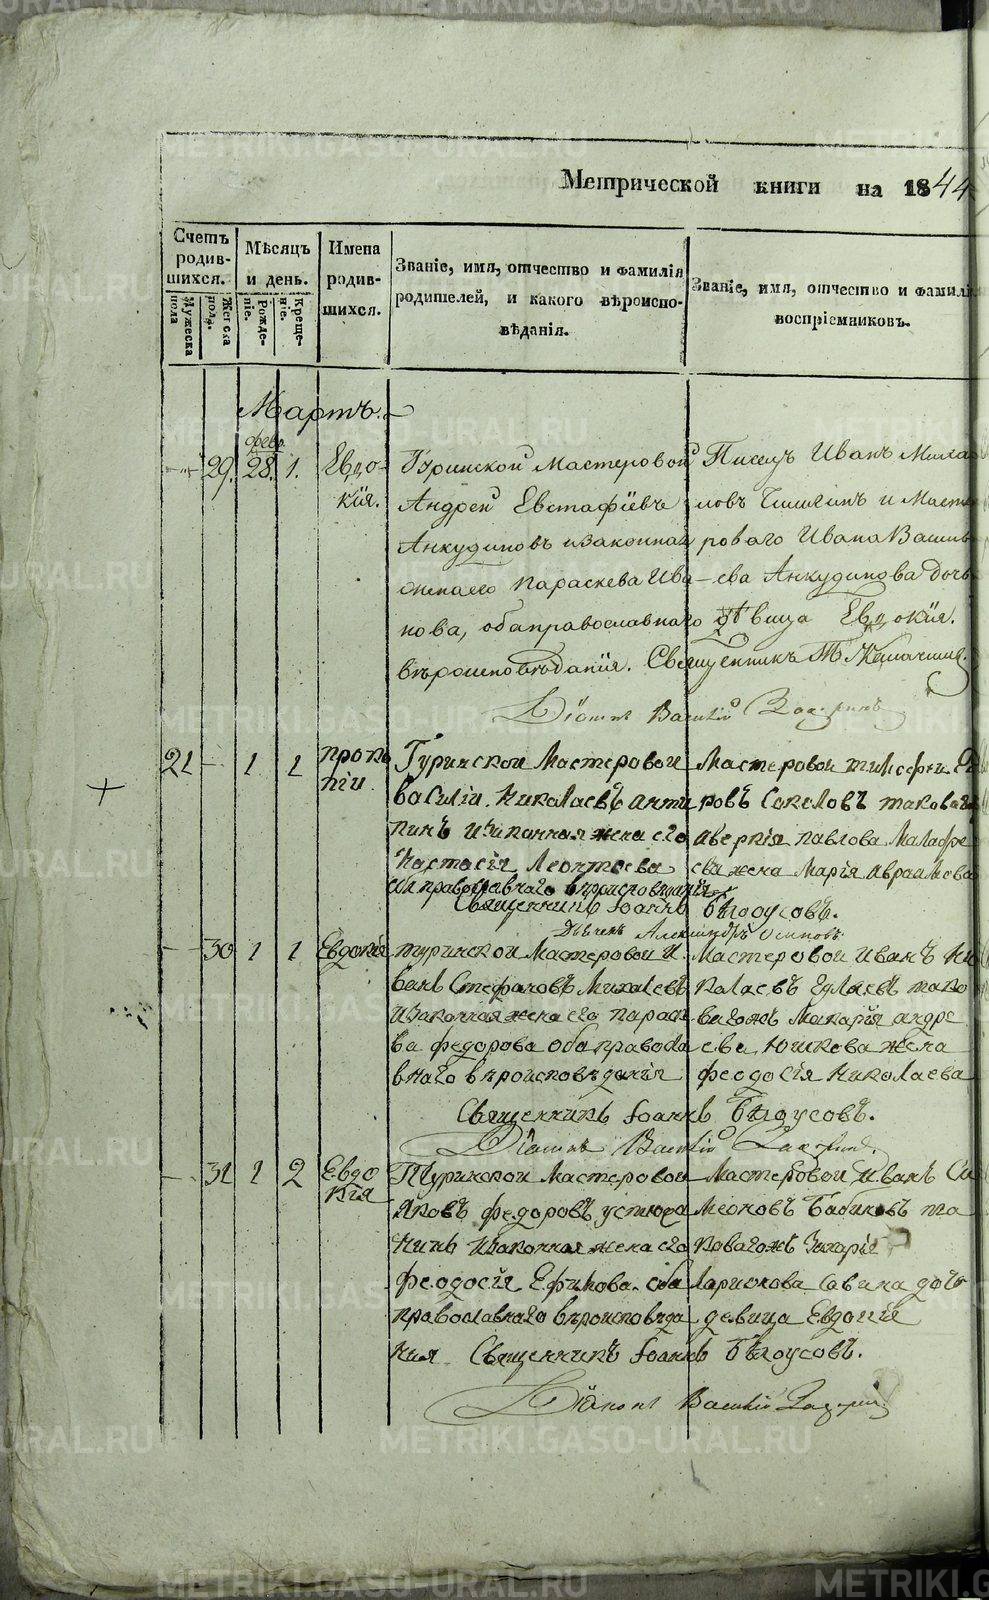 Метрической книги на 1844
Счетъ родив-шихся.
Мужеска пола
Женска пола.
Мѣсяцъ и день.
Рожде-ніе.
Креще-ніе.
Имена родив-шихся.
Званіе, имя, отчество и фамилія
родителей, и какого вѣроиспо-
вѣданія.
Званіе, имя, отчество и фамилі
воспріемниковъ.
Мартъ.
февр.
29. 28. 1. Евдо-
кія.
Туринской Мастеровой
Андрей Евстафіевъ
Анкудиновъ и законная
жена его Параскева Ива-
нова, оба православнаго
вѣроисповѣданія.
Писецъ Иванъ
ловъ и Масте
роваго Ивана Василь
ева Анкудинова дочь
дѣвица Евдокія.
Священникъ
Діаконъ Василій
21 1 1 Проко
пій
Туринской Мастеровой
Василій Николаевъ Анти
пинъ и законная жена его
Настасія Леонтьева
оба православнаго вѣроисповѣданія
Мастеровой Тимофей
ровъ Соколовъ таковаго
Аверкія Павлова Малафе
ева жена Марія Авраамова
Священникъ Іоаннъ Бѣлоусовъ.
Дьячекъ Александръ Осиповъ
30 1 1 Евдокія
Туринской Мастеровой И
ванъ Стефановъ Михалевъ
и законная жена его Параск
ва Федорова оба правосла
внаго вѣроисповѣданія
Мастеровой Иванъ Ни
колаевъ таково
вагожъ Макарія Андре
ева Юшкова жена
Феодосія Николаева
Священникъ Іоаннъ Бѣлоусовъ.
Діаконъ Василій
31 1 2 Евдо
кія
Туринской Мастеровой
Яковъ Федоровъ Устюжа
нинъ и законная жена его
Феодосія Ефимова оба
православнаго вѣроисповѣда
нія
Мастеровой Иванъ Си
меоновъ Бабиковъ та
ковагожъ Захарія
Ларионова Савина дочь
девица Евдокія
Священникъ Іоаннъ Бѣлоусовъ.
Діаконъ Василій
METRIKI.GASO-URAL.RU